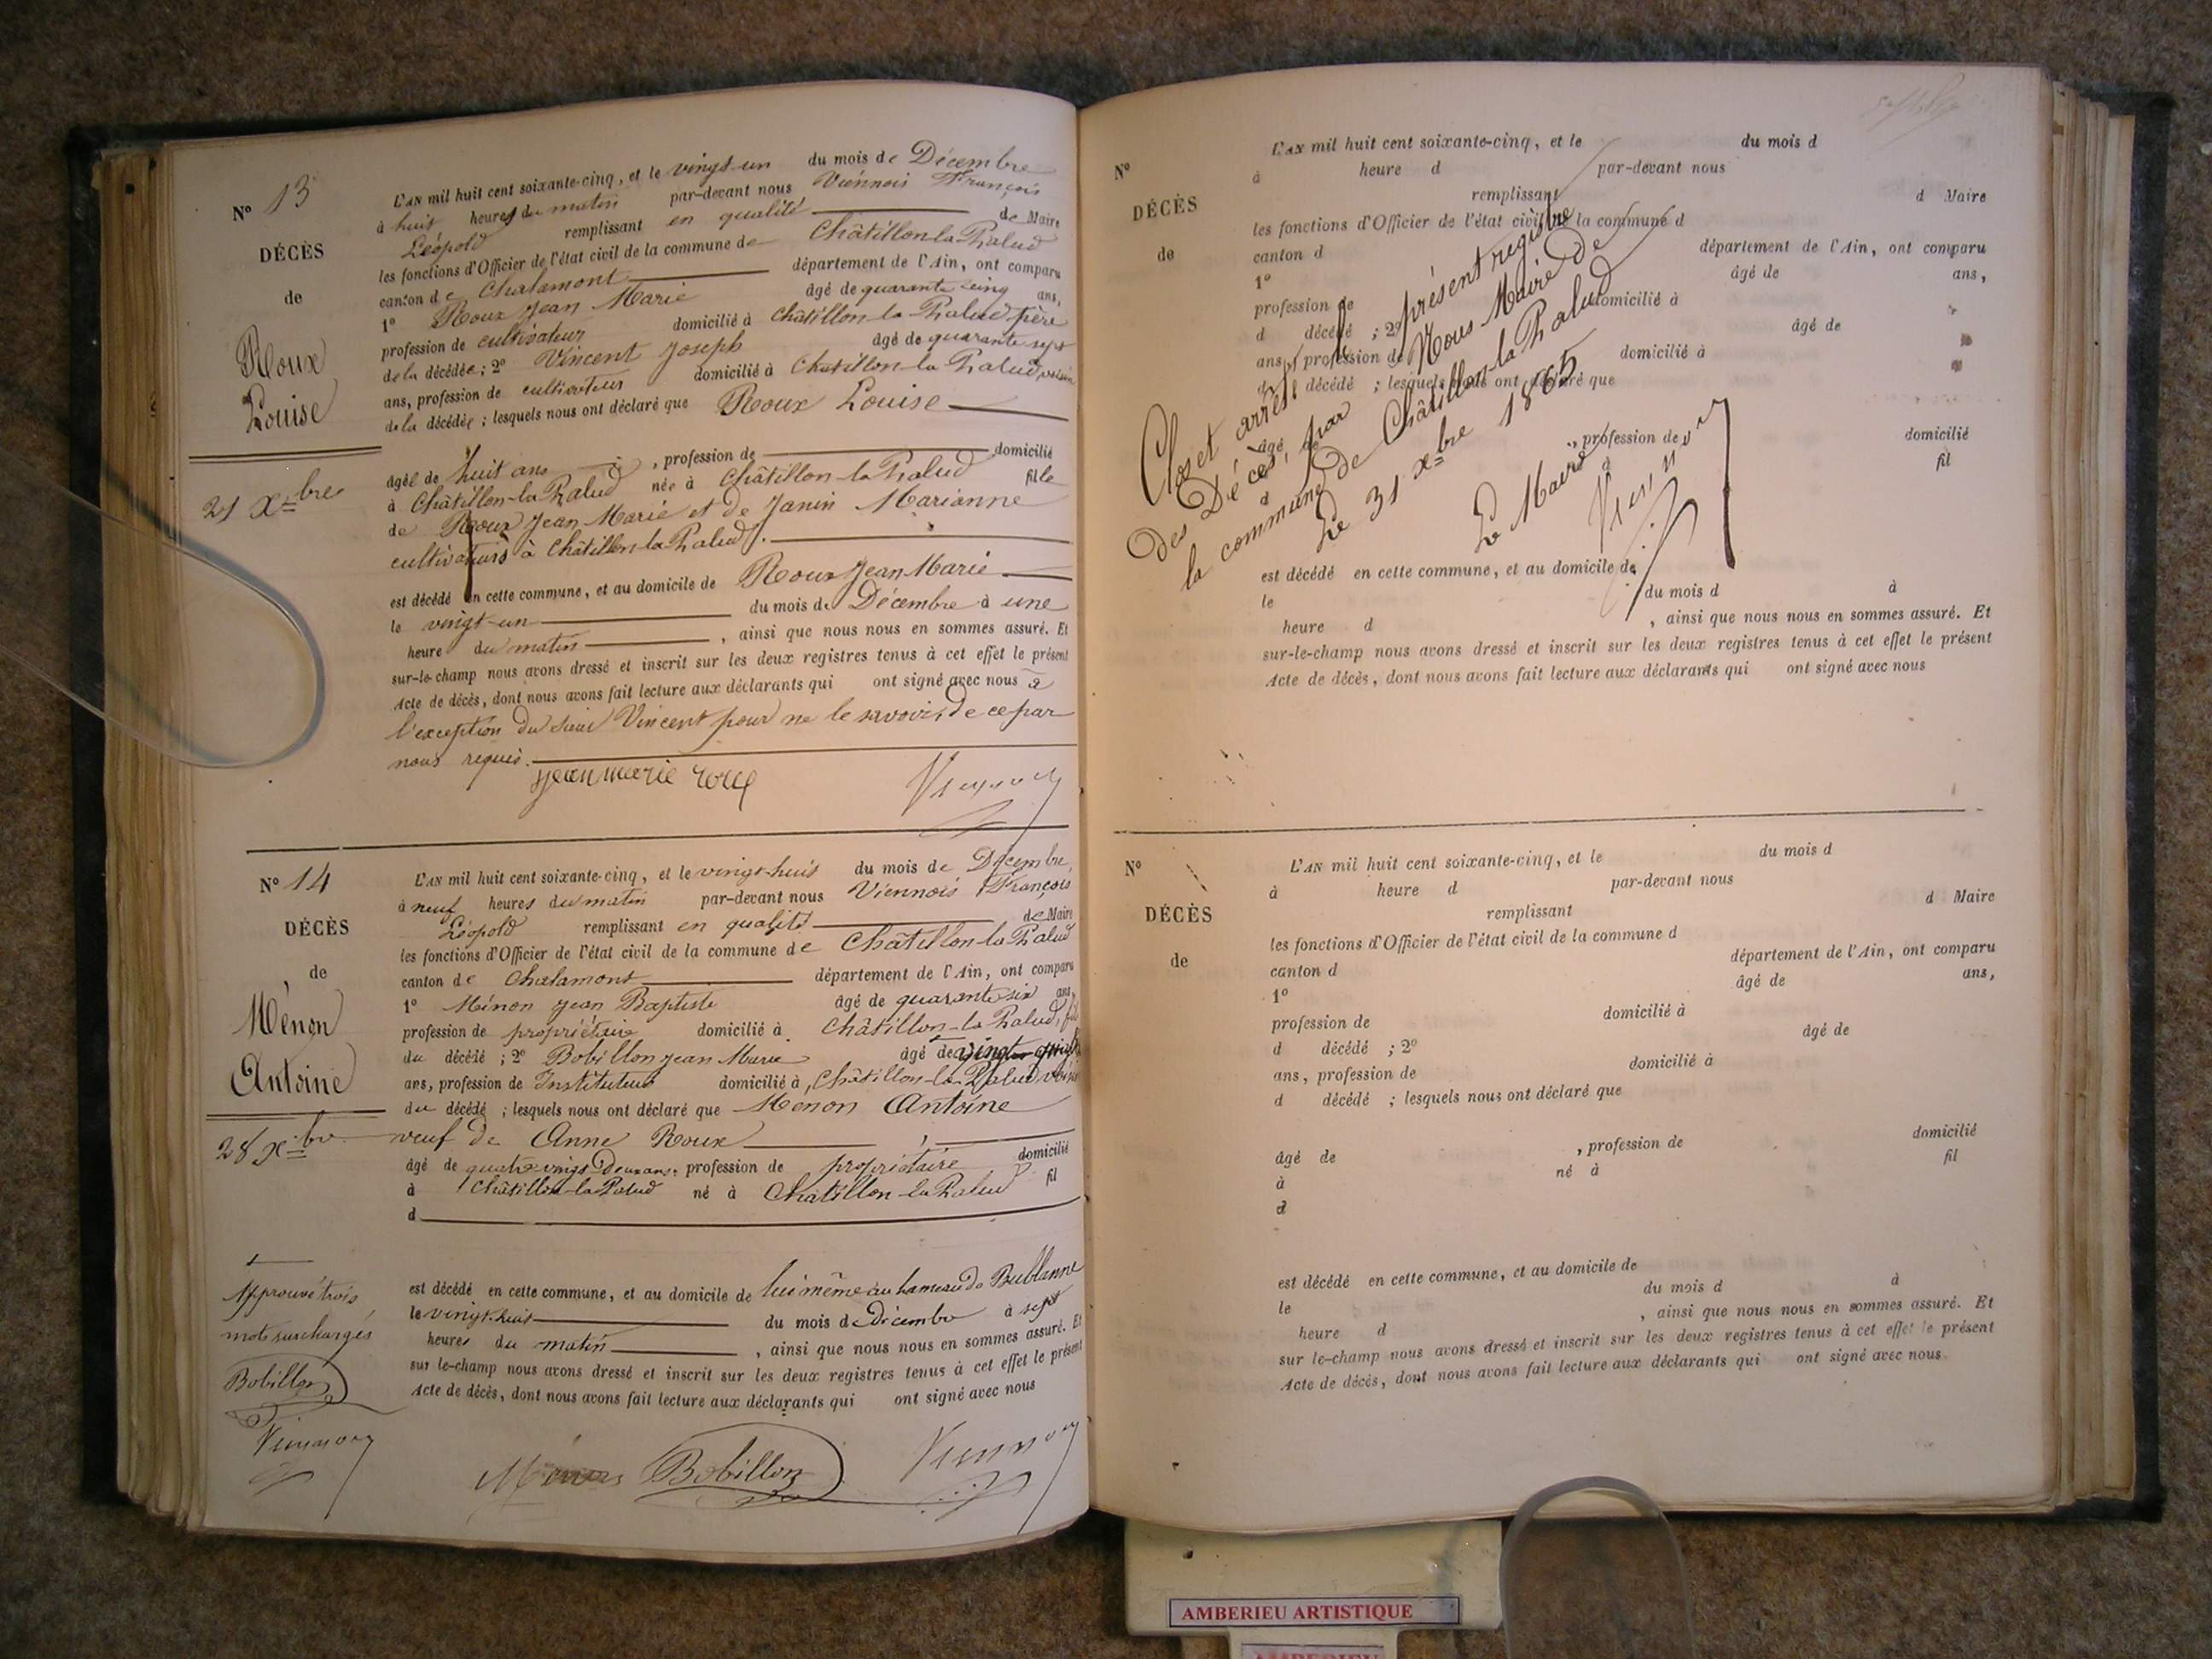 N° 13
DÉCÈS
de
Roux
Louise
21 Xbre
L'AN mil huit cent soixante-cinq, et le vingt-un du mois de Décembre
à huit heures du matin par-devant nous Viennois François
Léopold remplissant en qualité de Maire
les fonctions d'Officier de l'état civil de la commune de Châtillon-la-Palud
canton de Chalamont département de l'Ain, ont comparu
1° Roux Jean Marie âgé de quarante cinq ans,
profession de cultivateur domicilié à Châtillon-la-Palud père
de la décédée ; 2° Vincent Joseph âgé de quarante sept
ans, profession de cultivateur domicilié à Châtillon-la-Palud, voisin
de la décédée ; lesquels nous ont déclaré que Roux Louise
âgée de huit ans , profession de domicilié
à Châtillon-la-Palud née à Châtillon-la-Palud fille
de Roux Jean Marie et de Janin Marianne
cultivateurs à Châtillon-la-Palud.
est décédé en cette commune, et au domicile de Roux Jean Marie
le vingt-un du mois de Décembre à une
heure du matin , ainsi que nous nous en sommes assuré. Et
sur-le-champ nous avons dressé et inscrit sur les deux registres tenus à cet effet le présent
Acte de décès, dont nous avons fait lecture aux déclarants qui ont signé avec nous à
l'exception du sieur Vincent pour ne le savoir, de ce par
nous requis.
jean marie roux Viennois
N° 14
DÉCÈS
de
Ménon
Antoine
28 Xbre
L'AN mil huit cent soixante-cinq, et le vingt-huit du mois de Décembre
à neuf heures du matin par-devant nous Viennois François
Léopold remplissant en qualité de Maire
les fonctions d'Officier de l'état civil de la commune de Châtillon-la-Palud
canton de Chalamont département de l'Ain, ont comparu
1° Ménon Jean Baptiste âgé de quarante six ans,
profession de propriétaire domicilié à Châtillon-la-Palud, fils
du décédé ; 2° Bobillon Jean Marie âgé de
ans, profession de Instituteur domicilié à Châtillon-la-Palud voisin
du décédé ; lesquels nous ont déclaré que Ménon Antoine
veuf de Anne Roux
âgé de quatre-vingt-deux ans, profession de propriétaire domicilié
à Châtillon-la-Palud né à Châtillon-la-Palud fil
d
est décédé en cette commune, et au domicile de lui même au hameau de Bublanne
le vingt-huit du mois de Décembre à sept
heures du matin , ainsi que nous nous en sommes assuré. Et
sur le-champ nous avons dressé et inscrit sur les deux registres tenus à cet effet le présent
Acte de décès, dont nous avons fait lecture aux déclarants qui ont signé avec nous
Approuvé trois
mots surchargés
Bobillon
Viennois
Ménon Bobillon Viennois
N°
DÉCÈS
de
L'AN mil huit cent soixante-cinq, et le du mois d
à heure d par-devant nous
remplissant d Maire
les fonctions d'Officier de l'état civil de la commune d
canton d département de l'Ain, ont comparu
1° âgé de ans,
profession de domicilié à
d décédé ; 2° âgé de
ans, profession de domicilié à
d décédé ; lesquels nous ont déclaré que
âgé de , profession de domicilié
d d fil
Clos et arrêté le présent registre
des Décès, par Nous Maire de
la commune de Châtillon-la-Palud
Le 31 Xbre 1865
Le Maire
Viennois
est décédé en cette commune, et au domicile de
le du mois d à
heure d , ainsi que nous nous en sommes assuré. Et
sur-le-champ nous avons dressé et inscrit sur les deux registres tenus à cet effet le présent
Acte de décès, dont nous avons fait lecture aux déclarants qui ont signé avec nous
N°
DÉCÈS
de
L'AN mil huit cent soixante-cinq, et le du mois d
à heure d par-devant nous
remplissant d Maire
les fonctions d'Officier de l'état civil de la commune d
canton d département de l'Ain, ont comparu
1° âgé de ans,
profession de domicilié à
d décédé ; 2° âgé de
ans, profession de domicilié à
d décédé ; lesquels nous ont déclaré que
âgé de , profession de domicilié
à né à fil
d
est décédé en cette commune, et au domicile de
le du mois d à
heure d , ainsi que nous nous en sommes assuré. Et
sur le-champ nous avons dressé et inscrit sur les deux registres tenus à cet effet le présent
Acte de décès, dont nous avons fait lecture aux déclarants qui ont signé avec nous
AMBERIEU ARTISTIQUE
AMBERIEU